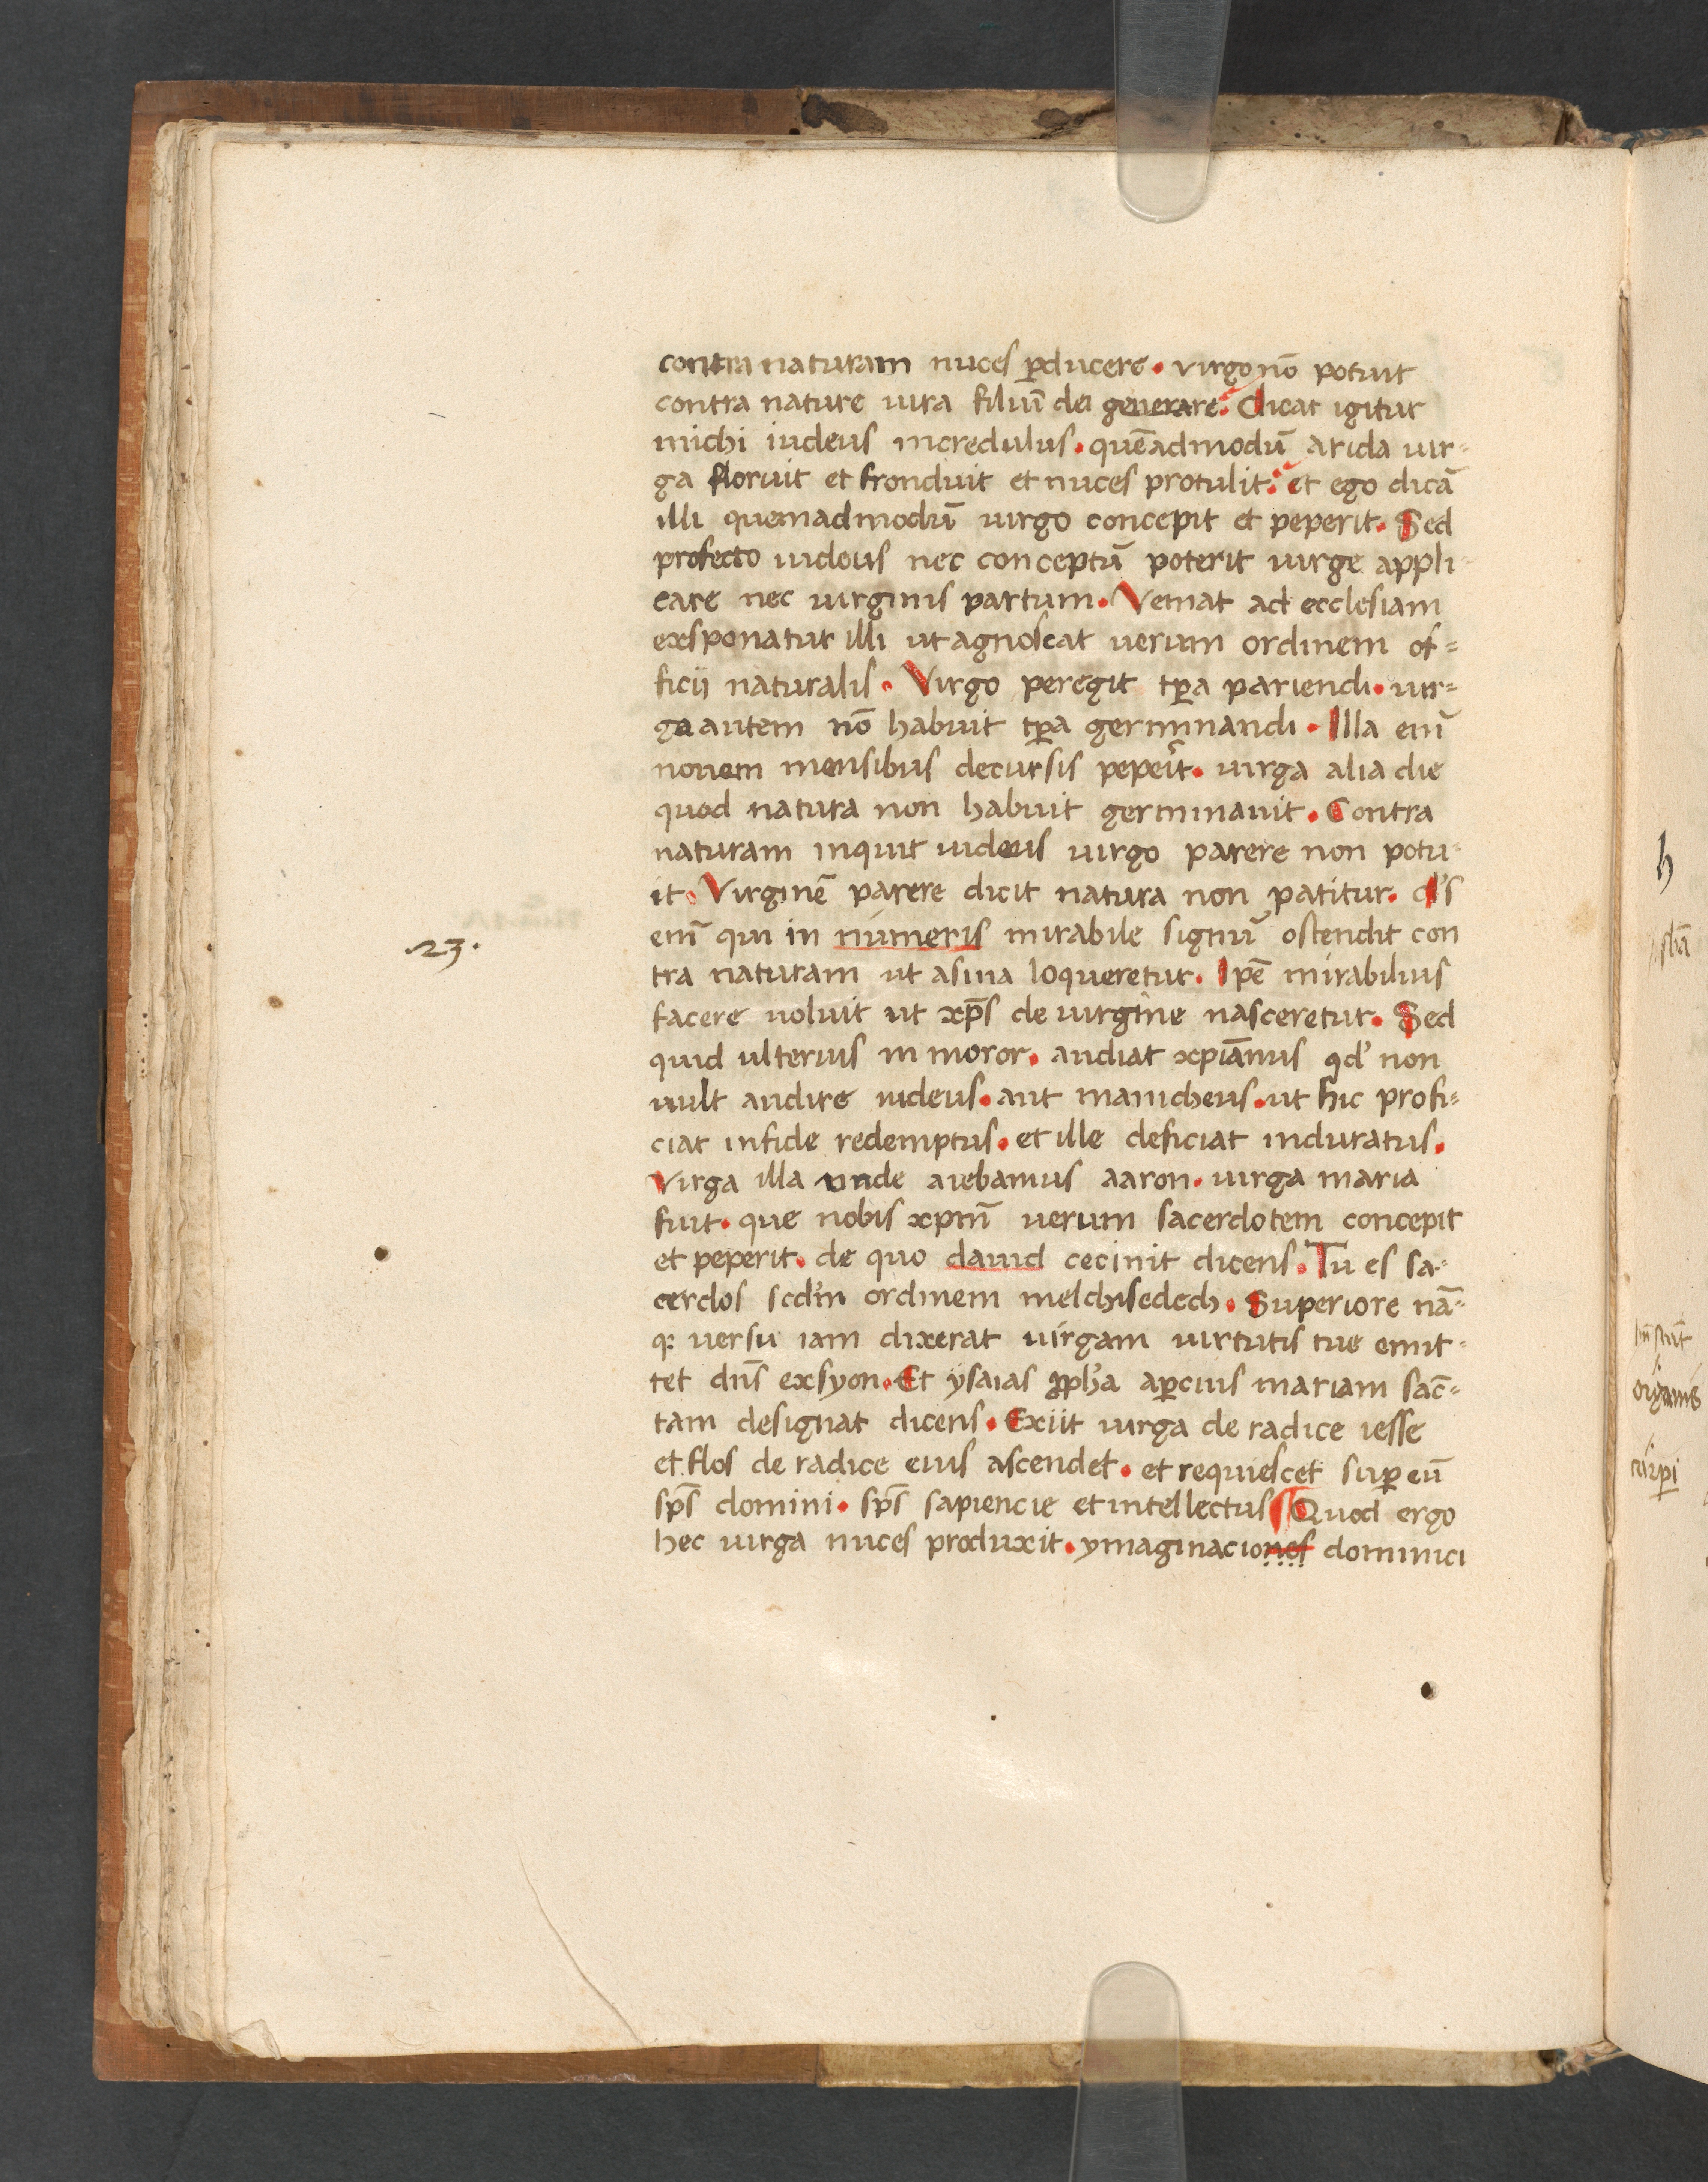 contra naturam nuces ꝓducere. virgo nō potuit
contra nature iura filiū dei generare. dicat igitur
michi iudeus incredulus. quēadmodū arida uir=
ga floruit et fronduit et nuces protulit. et ego dicā
illi quemadmodū uirgo concepit et peperit. Sed
profecto iudeus nec conceptū poterit uirge appli-
care nec uirginis partum. Veniat ad ecclesiam
exsponatur illi ut agnoscat uerum ordinem of=
ficij naturalis. Virgo peregit tꝑa pariendi. uir=
ga autem nō habuit tꝑa germinandi. Illa eni̅
nouem mensibus decursis peperit. uirga alia die
quod natura non habuit germinauit. Contra
naturam inquit iudeus uirgo parere non potu-
it. Virginē parere dicit natura non patitur. d's
eni̅ qui in numeris mirabile signū ostendit con
tra naturam ut asina loqueretur. Ipē mirabilius
facere uoluit ut xp̄s de uirgine nasceretur. Sed
quid ulterius inmoror. audiat xpiānus qd' non
uult audire iudeus. aut manicheus. ut hic profi=
ciat infide redemptus. et ille deficiat induratus.
Virga illa unde aiebamus aaron. uirga maria
fuit. que nobis xpm̄ uerum sacerdotem concepit
et peperit. de quo dauid cecinit dicens. Tu es sa-
cerdos scd'm ordinem melchisedech. Superiore nā=
q; uersu iam dixerat uirgam uirtutis tue emit-
tet dn̄s exsyon. Et ysaias ꝓph'a aꝑcius mariam sāc=
tam designat dicens. Exiit uirga de radice iesse
et flos de radice eius ascendet. et requiescet suꝑ eū
sp̄s domini. sp̄s sapiencie et intellectus Quod ergo
hec uirga nuces produxit. ymaginaciones dominici
23.
h